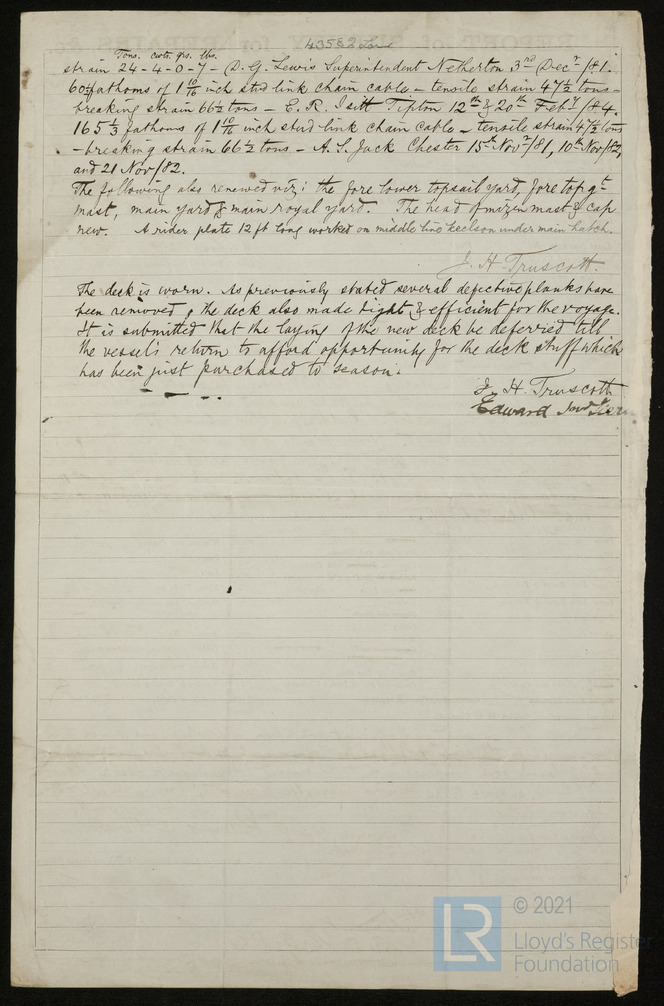 43582 Lon
Tons. cwts. qrs. lbs.
strain 24-4-0-7- D. G. Lewis Superintendent Netherton 3rd Decr/81.
60 fathoms of 1 10/16 inch stud link chain cable - tensile strain 47½ tons -
breaking strain 66½ tons - E. R. Isitt Tipton 12th & 20th Feby/84.
165⅓ fathoms of 1 10/16 inch stud link chain cable - tensile strain 47½ tons
- breaking strain 66½ tons - A. S. Jack Chester 15th Novr/81, 10th Nov/82,
and 21 Nov/82.
The following also renewed viz: the fore lower topsail yard, fore top gt
mast, main yard & main royal yard. The head of mizen mast & cap
new. A rider plate 12 ft long worked on middle line keelson under main hatch.
J. H. Truscott.
The deck is worn. As previously stated several defective planks have
been removed, the deck also made tight & efficient for the voyage.
It is submitted that the laying of the new deck be deferred till
the vessel's return to afford opportunity for the deck stuff which
has been just purchased to season.
J. H. Truscott
Edward
© 2021
LR Lloyd's Register
Foundation